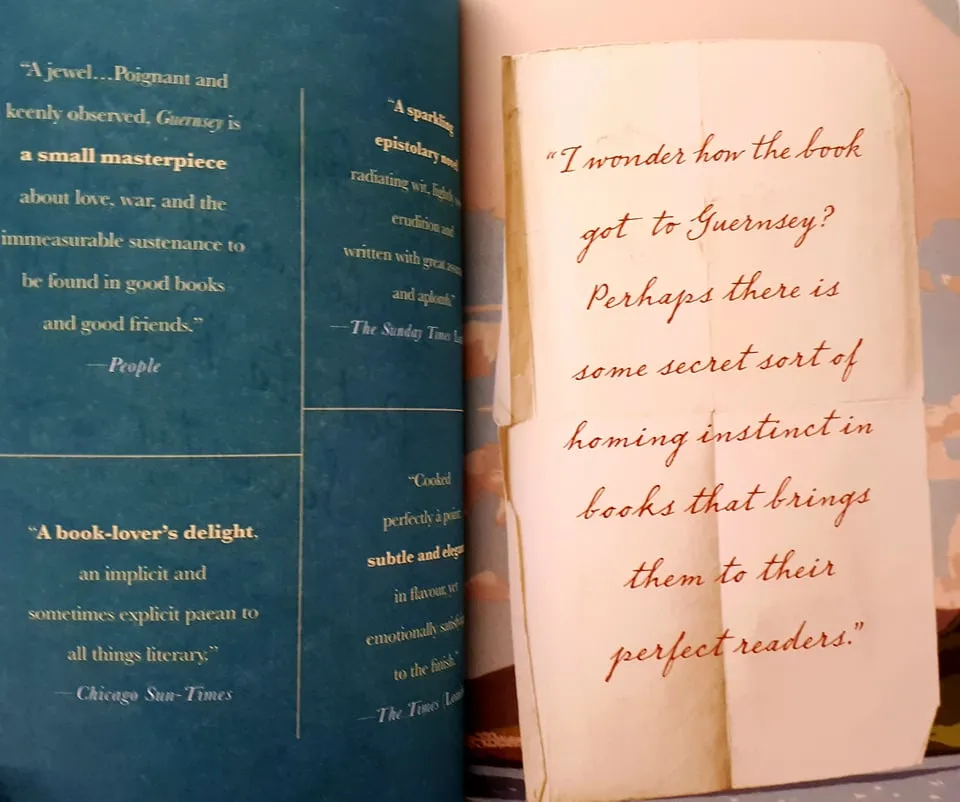 “A jewel…Poignant and
keenly observed, Guernsey is
a small masterpiece
about love, war, and the
immeasurable sustenance to
be found in good books
and good friends.”
—People
“A book-lover’s delight,
an implicit and
sometimes explicit paean to
all things literary.”
—Chicago Sun-Times
“A sparkling
epistolary novel
radiating wit, lightly
erudition and
written with great
and aplomb.”
—The Sunday Times
“Cooked
perfectly à point:
subtle and elegant
in flavour, yet
emotionally
to the finish.”
—The Times
“I wonder how the book
got to Guernsey?
Perhaps there is
some secret sort of
homing instinct in
books that brings
them to their
perfect readers.”